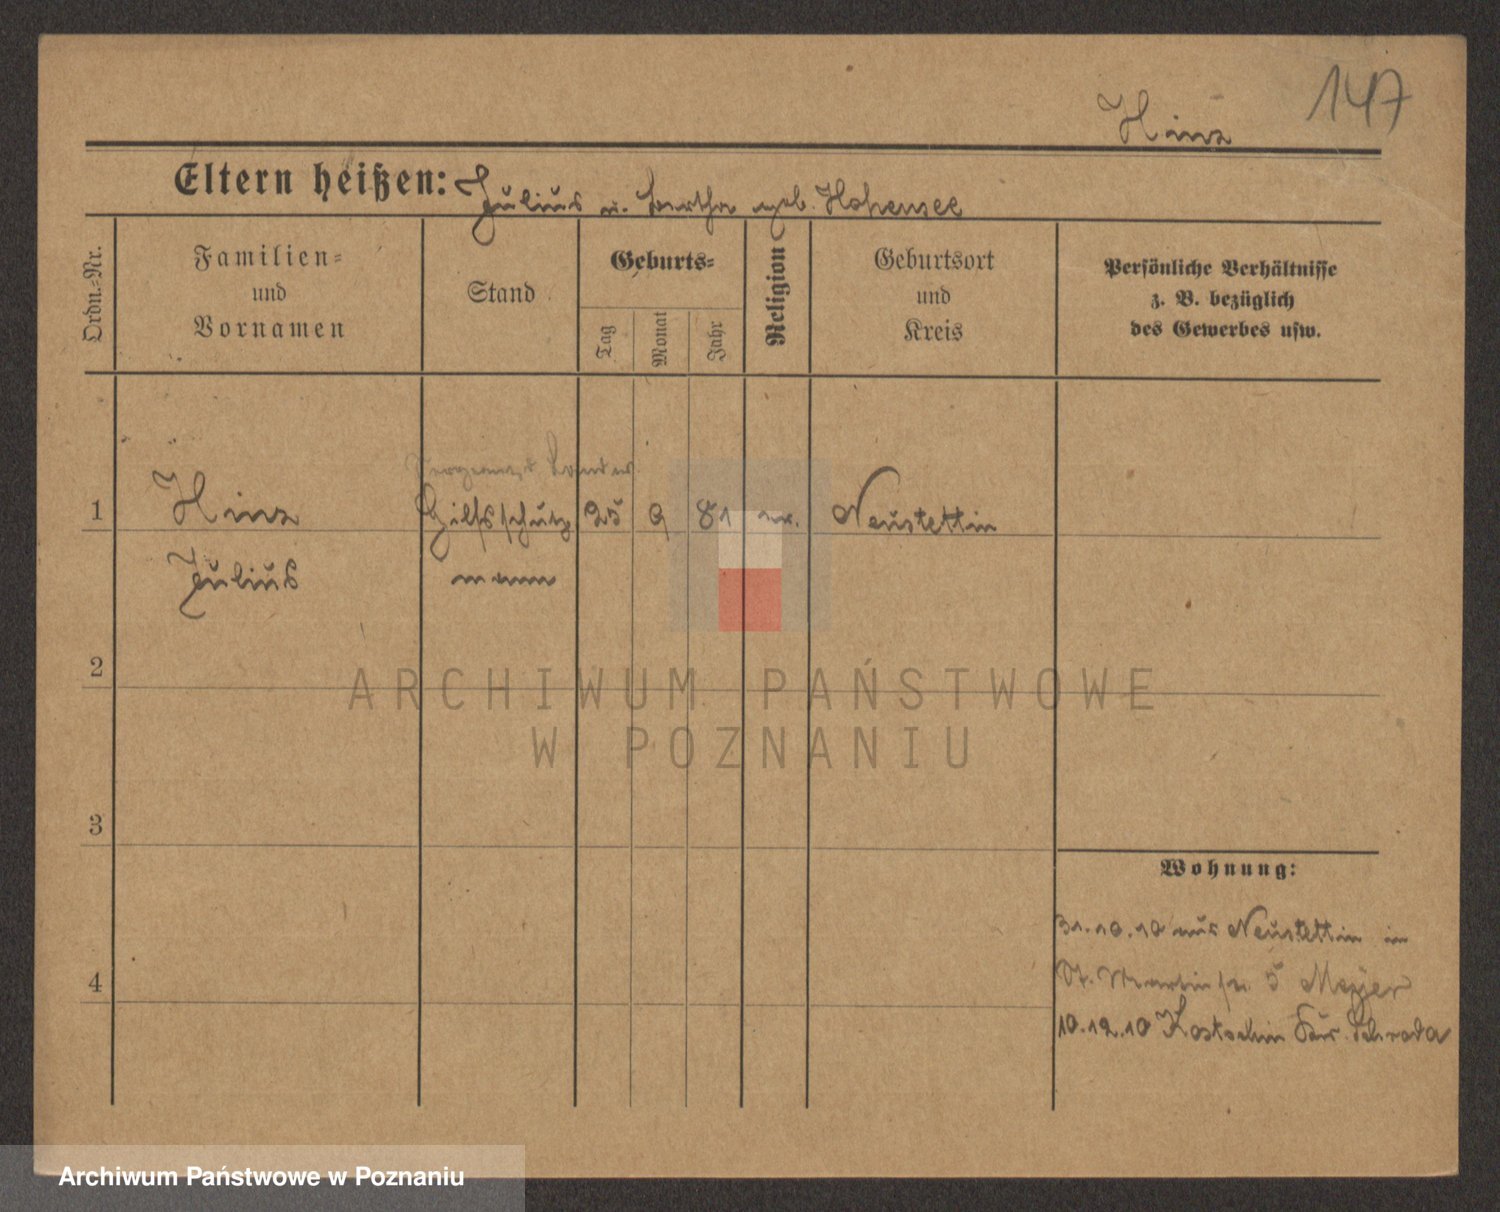 147
Hinz
Eltern heißen: Julius u. Bertha geb. Hohensee
Ordn.-Nr.
Familien-
und
Vornamen
Stand
Geburts-
Tag
Monat
Jahr
Religion
Geburtsort
und
Kreis
Persönliche Verhältnisse
z. B. bezüglich
des Gewerbes usw.
1 Hinz Hilfsschutz 25 9 81 ev. Neustettin
Julius mann
2
3
4
Wohnung:
31.10.10 aus Neustettin in
St. Martin str 5 Meyer
10.12.10 Kostschin Schroda
ARCHIWUM PAŃSTWOWE
W POZNANIU
Archiwum Państwowe w Poznaniu